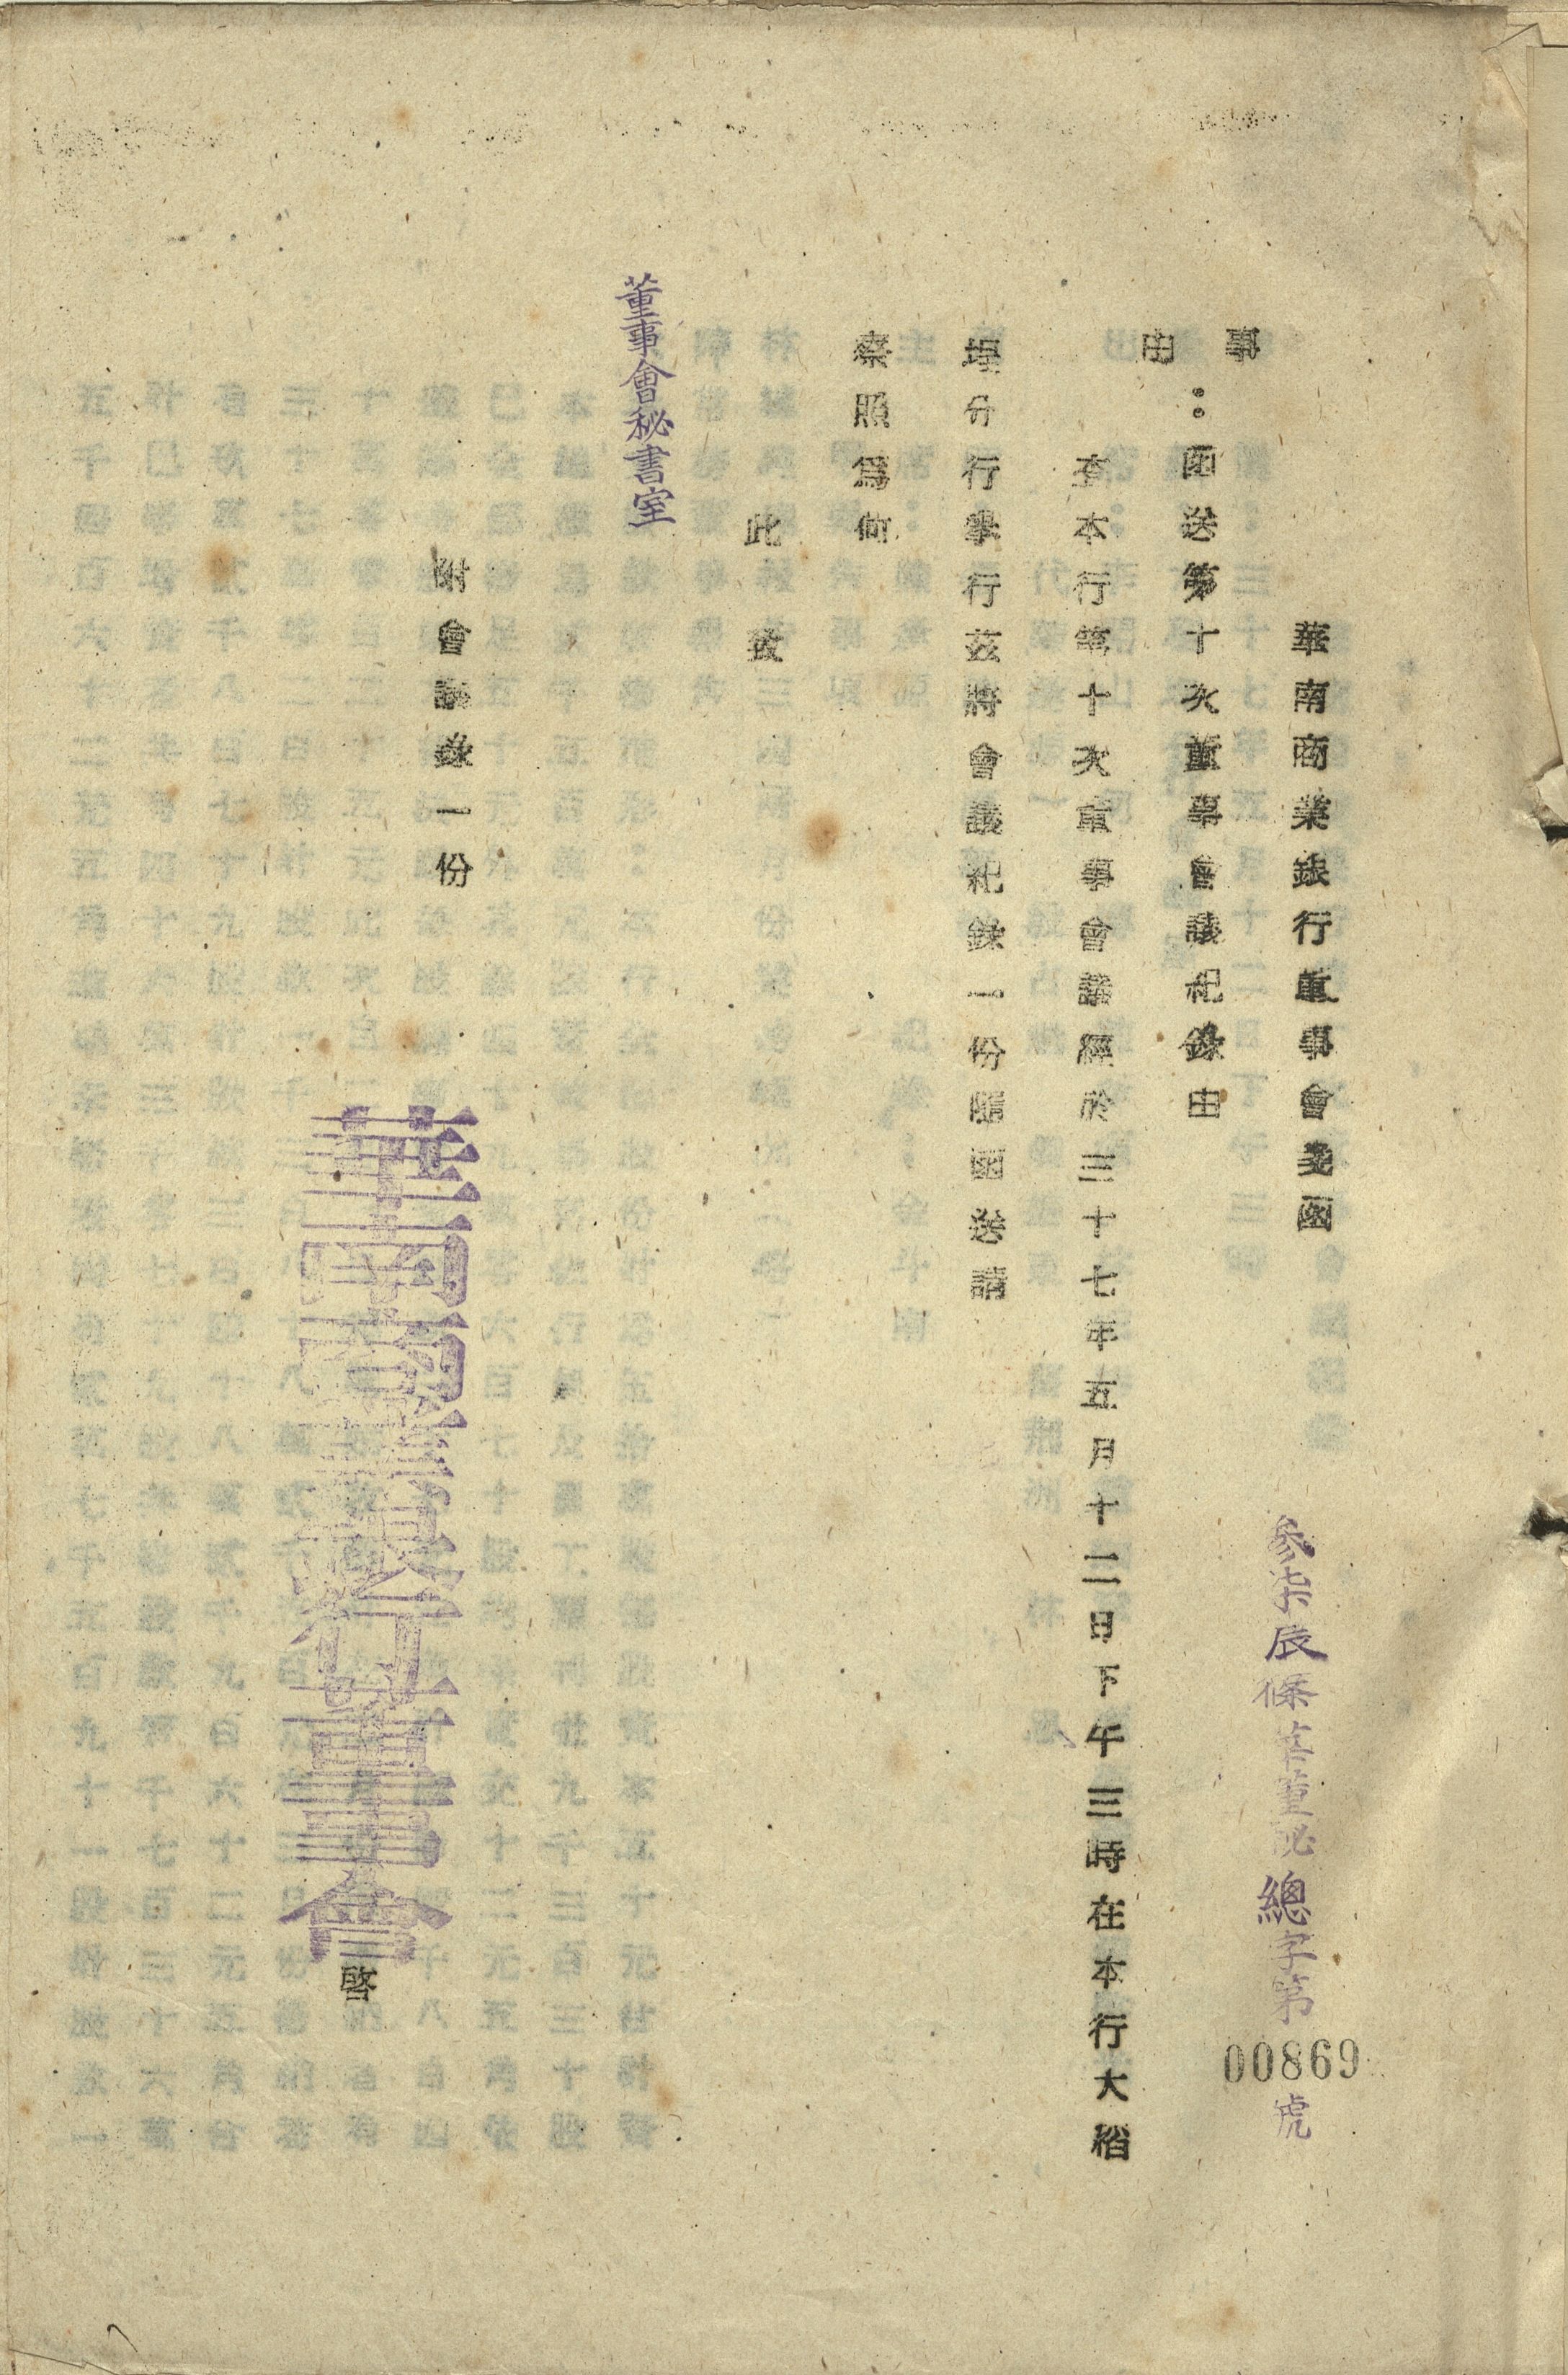 華南商業銀行董事會箋函
參柒辰篠華董秘總字第00869號
事由：函送第十次董事會議紀錄由
查本行第十次董事會議經於三十七年五月十二日下午三時在本行大稻
埕分行舉行茲將會議紀錄一份隨函送請
察照爲何
此致
董事會秘書室
附會議錄一份
華南商業銀行董事會啓